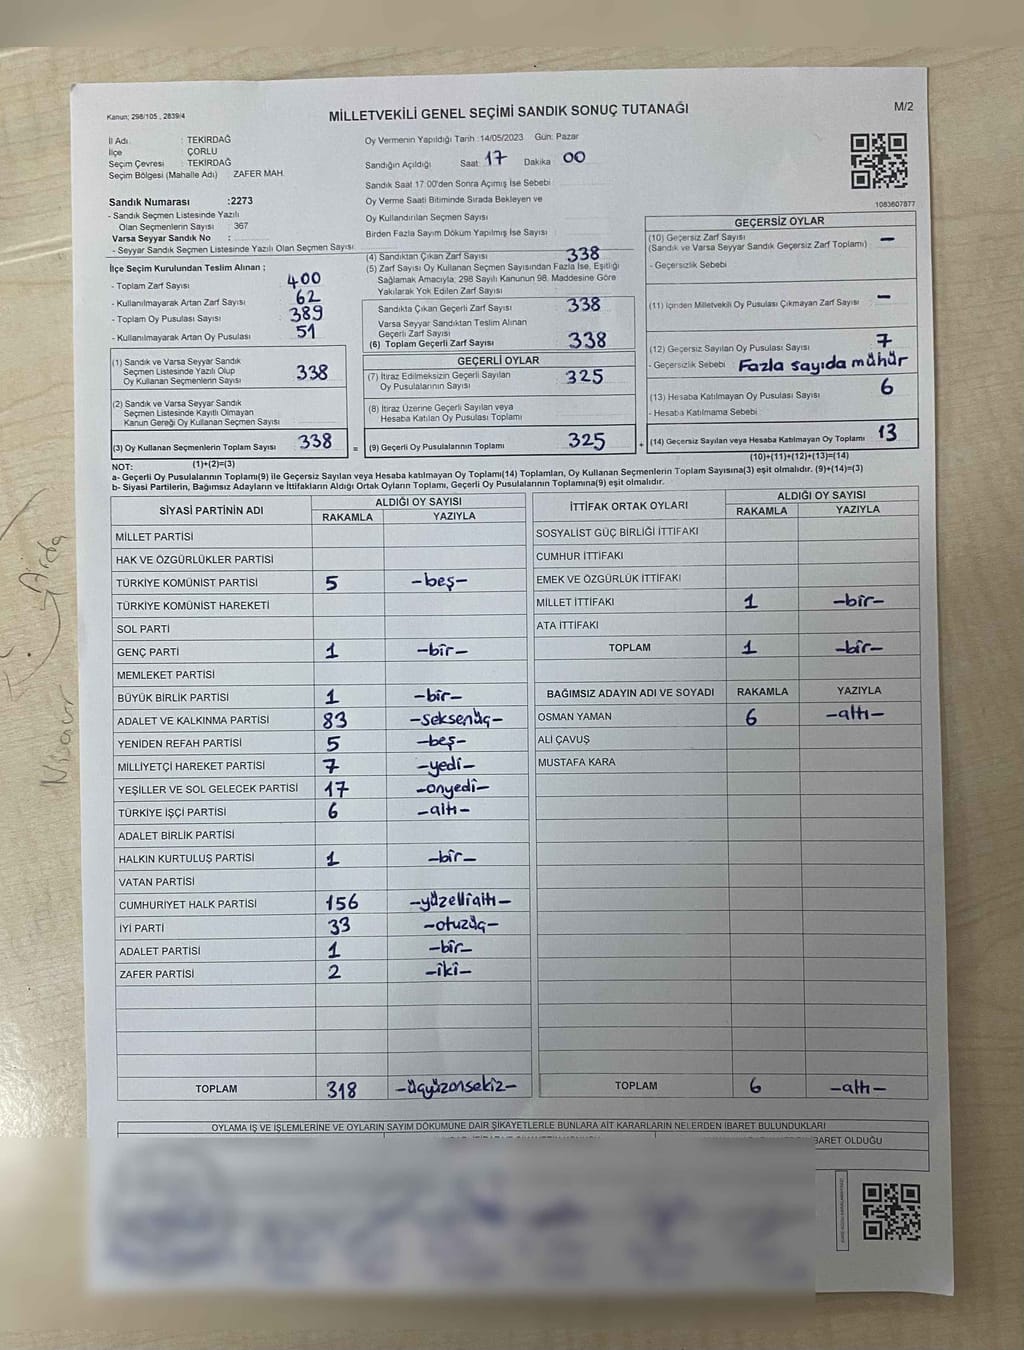 Kanun; 298/105 , 2839/4
MİLLETVEKİLİ GENEL SEÇİMİ SANDIK SONUÇ TUTANAĞI
M/2
İl Adı : TEKİRDAĞ
İlçe : ÇORLU
Seçim Çevresi : TEKİRDAĞ
Seçim Bölgesi (Mahalle Adı) : ZAFER MAH.
Oy Vermenin Yapıldığı Tarih :14/05/2023 Gün: Pazar
Sandığın Açıldığı Saat: 17 Dakika : 00
Sandık Saat 17:00'den Sonra Açımış İse Sebebi
Oy Verme Saati Bitiminde Sırada Bekleyen ve
Oy Kullandırılan Seçmen Sayısı
Birden Fazla Sayım Döküm Yapılmış İse Sayısı
1083607877
Sandık Numarası :2273
- Sandık Seçmen Listesinde Yazılı
Olan Seçmenlerin Sayısı : 367
Varsa Seyyar Sandık No :
- Seyyar Sandık Seçmen Listesinde Yazılı Olan Seçmen Sayısı
İlçe Seçim Kurulundan Teslim Alınan ;
- Toplam Zarf Sayısı 400
- Kullanılmayarak Artan Zarf Sayısı 62
- Toplam Oy Pusulası Sayısı 389
- Kullanılmayarak Artan Oy Pusulası 51
(1) Sandık ve Varsa Seyyar Sandık
Seçmen Listesinde Yazılı Olup
Oy Kullanan Seçmenlerin Sayısı 338
(2) Sandık ve Varsa Seyyar Sandık
Seçmen Listesinde Kayıtlı Olmayan
Kanun Gereği Oy Kullanan Seçmen Sayısı
(3) Oy Kullanan Seçmenlerin Toplam Sayısı 338 =
(1)+(2)=(3)
(4) Sandıktan Çıkan Zarf Sayısı 338
(5) Zarf Sayısı Oy Kullanan Seçmen Sayısından Fazla İse, Eşitliği
Sağlamak Amacıyla; 298 Sayılı Kanunun 98. Maddesine Göre
Yakılarak Yok Edilen Zarf Sayısı
Sandıkta Çıkan Geçerli Zarf Sayısı 338
Varsa Seyyar Sandıktan Teslim Alınan
Geçerli Zarf Sayısı
(6) Toplam Geçerli Zarf Sayısı 338
GEÇERLİ OYLAR
(7) İtiraz Edilmeksizin Geçerli Sayılan
Oy Pusulalarının Sayısı 325
(8) İtiraz Üzerine Geçerli Sayılan veya
Hesaba Katılan Oy Pusulası Toplamı
(9) Geçerli Oy Pusulalarının Toplamı 325 +
GEÇERSİZ OYLAR
(10) Geçersiz Zarf Sayısı –
(Sandık ve Varsa Seyyar Sandık Geçersiz Zarf Toplamı)
- Geçersizlik Sebebi
(11) İçinden Milletvekili Oy Pusulası Çıkmayan Zarf Sayısı –
(12) Geçersiz Sayılan Oy Pusulası Sayısı 7
- Geçersizlik Sebebi : Fazla sayıda mühür
(13) Hesaba Katılmayan Oy Pusulası Sayısı 6
- Hesaba Katılmama Sebebi
(14) Geçersiz Sayılan veya Hesaba Katılmayan Oy Toplamı 13
(10)+(11)+(12)+(13)=(14)
NOT:
a- Geçerli Oy Pusulalarının Toplamı(9) ile Geçersiz Sayılan veya Hesaba katılmayan Oy Toplamı(14) Toplamları, Oy Kullanan Seçmenlerin Toplam Sayısına(3) eşit olmalıdır. (9)+(14)=(3)
b- Siyasi Partilerin, Bağımsız Adayların ve İttifakların Aldığı Ortak Oyların Toplamı, Geçerli Oy Pusulalarının Toplamına(9) eşit olmalıdır.
SİYASİ PARTİNİN ADI ALDIĞI OY SAYISI
RAKAMLA YAZIYLA
MİLLET PARTİSİ
HAK VE ÖZGÜRLÜKLER PARTİSİ
TÜRKİYE KOMÜNİST PARTİSİ 5 -beş-
TÜRKİYE KOMÜNİST HAREKETİ
SOL PARTİ
GENÇ PARTİ 1 -bir-
MEMLEKET PARTİSİ
BÜYÜK BİRLİK PARTİSİ 1 -bir-
ADALET VE KALKINMA PARTİSİ 83 -seksenüç-
YENİDEN REFAH PARTİSİ 5 -beş-
MİLLİYETÇİ HAREKET PARTİSİ 7 -yedi-
YEŞİLLER VE SOL GELECEK PARTİSİ 17 -onyedi-
TÜRKİYE İŞÇİ PARTİSİ 6 -altı-
ADALET BİRLİK PARTİSİ
HALKIN KURTULUŞ PARTİSİ 1 -bir-
VATAN PARTİSİ
CUMHURİYET HALK PARTİSİ 156 -yüzellialtı-
İYİ PARTİ 33 -otuzüç-
ADALET PARTİSİ 1 -bir-
ZAFER PARTİSİ 2 -iki-
TOPLAM 318 -üçyüzonsekiz-
İTTİFAK ORTAK OYLARI ALDIĞI OY SAYISI
RAKAMLA YAZIYLA
SOSYALİST GÜÇ BİRLİĞİ İTTİFAKI
CUMHUR İTTİFAKI
EMEK VE ÖZGÜRLÜK İTTİFAKI
MİLLET İTTİFAKI 1 -bir-
ATA İTTİFAKI
TOPLAM 1 -bir-
BAĞIMSIZ ADAYIN ADI VE SOYADI RAKAMLA YAZIYLA
OSMAN YAMAN 6 -altı-
ALİ ÇAVUŞ
MUSTAFA KARA
TOPLAM 6 -altı-
OYLAMA İŞ VE İŞLEMLERİNE VE OYLARIN SAYIM DÖKÜMÜNE DAİR ŞİKAYETLERLE BUNLARA AİT KARARLARIN NELERDEN İBARET BULUNDUKLARI
İBARET OLDUĞU
Arda
Nisanur